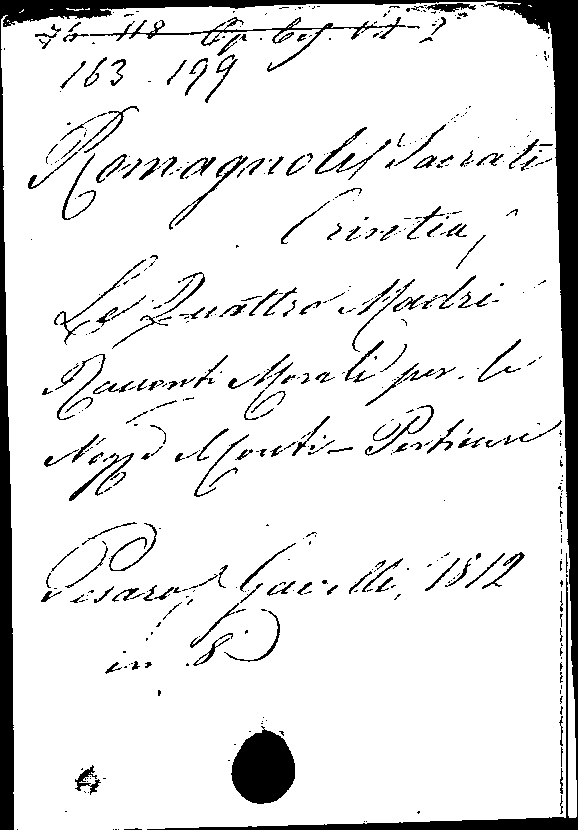 76. 118 Op. Leg. Vol 2
163 . 199
Romagnoli Sacrati
Orintia,
Le Quattro Madri
Racconti Morali per le
Nozze Monti-Perticari
Pesaro, Gavelli, 1812
in 8°